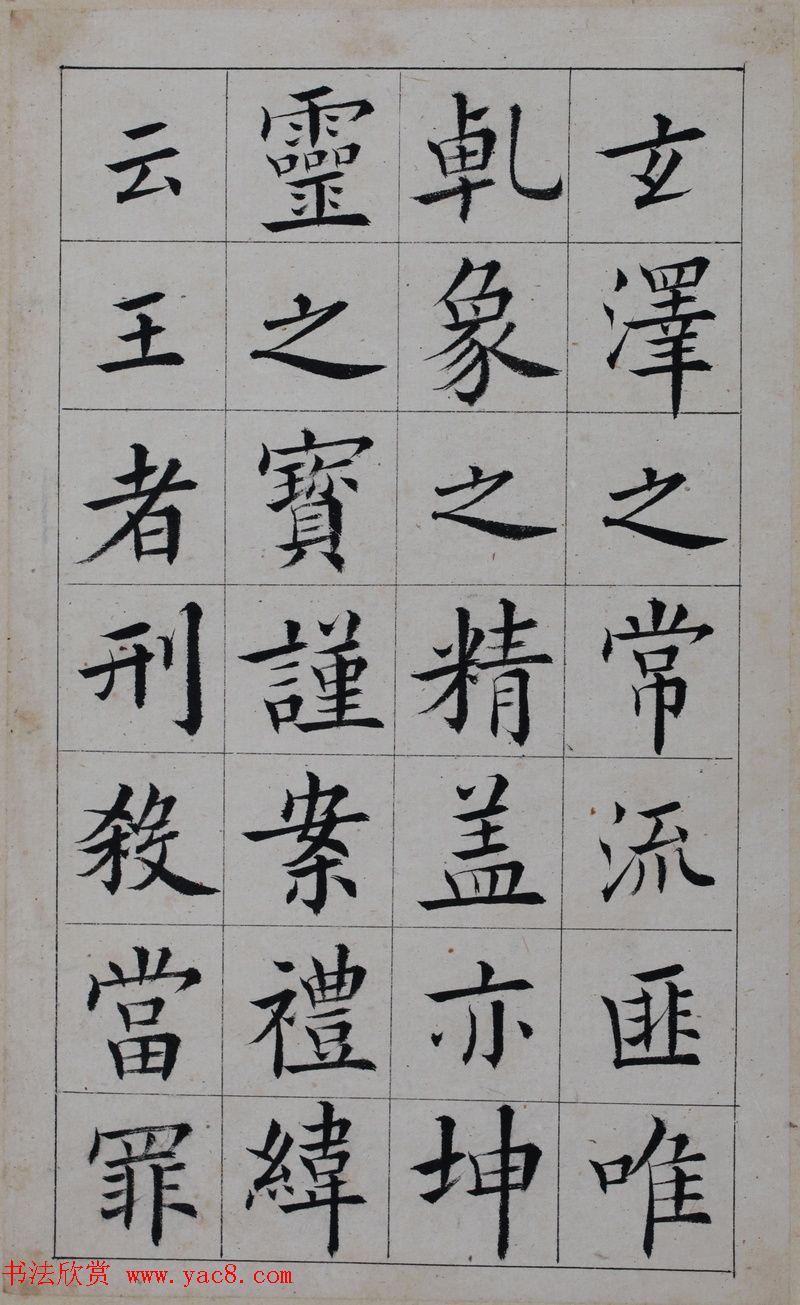 玄澤之常流匪唯
乹象之精盖亦坤
靈之寶謹案禮緯
云王者刑殺當罪
书法欣赏 www.yac8.com